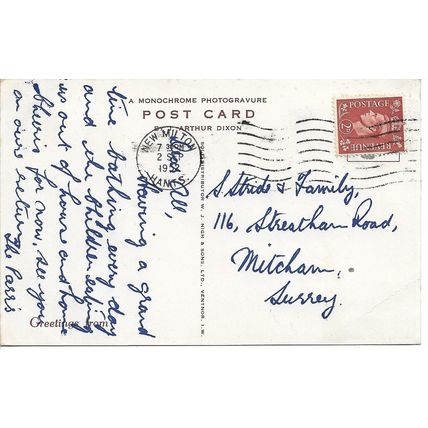 A MONOCHROME PHOTOGRAVURE
POST CARD
BY ARTHUR DIXON
NEW MILTON
HANTS.
2 SEP
POSTAGE
REVENUE
SOLE DISTRIBUTOR W. J. NIGH & SONS, LTD., VENTNOR, I.W.
Greetings from
Hello All,
Having a grand
time bathing every day
and the children eating
us out of house and home
Cheerio for now, see you
on our return
The Parrs
S Stride & Family,
116, Streatham Road,
Mitcham,
Surrey.